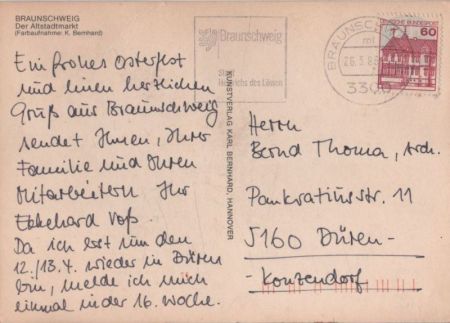 BRAUNSCHWEIG
Der Altstadtmarkt
(Farbaufnahme: K. Bernhard)
Ein frohes Osterfest
und einen herzlichen
Gruß aus Braunschweig
sendet Ihnen, Ihrer
Familie und Ihren
Mitarbeitern Ihr
Ekkehard Voß.
Da ich erst um den
12./13.4. wieder in Düren
bin, melde ich mich
einmal in der 16. Woche.
KUNSTVERLAG KARL BERNHARD, HANNOVER
Braunschweig
Heinrichs des Löwen
BRAUNSCHW
mi
3300
DEUTSCHE BUNDESPOST
60
Herrn
Bernd Thoma, Arch.
Pankratiusstr. 11
5160 Düren-
-Konzendorf-